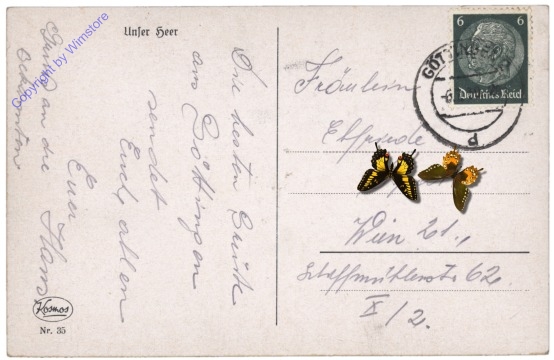 Unser Heer
Die besten Grüße
aus Göttingen
sendet
Euch allen
Euer Hans
Gruß an die
Bekannten
Kosmos
Nr. 35
Fräulein
Wien 21.,
62
X/2.
6 6
Deutsches Reich
GÖTTINGEN
Copyright by Wimstore